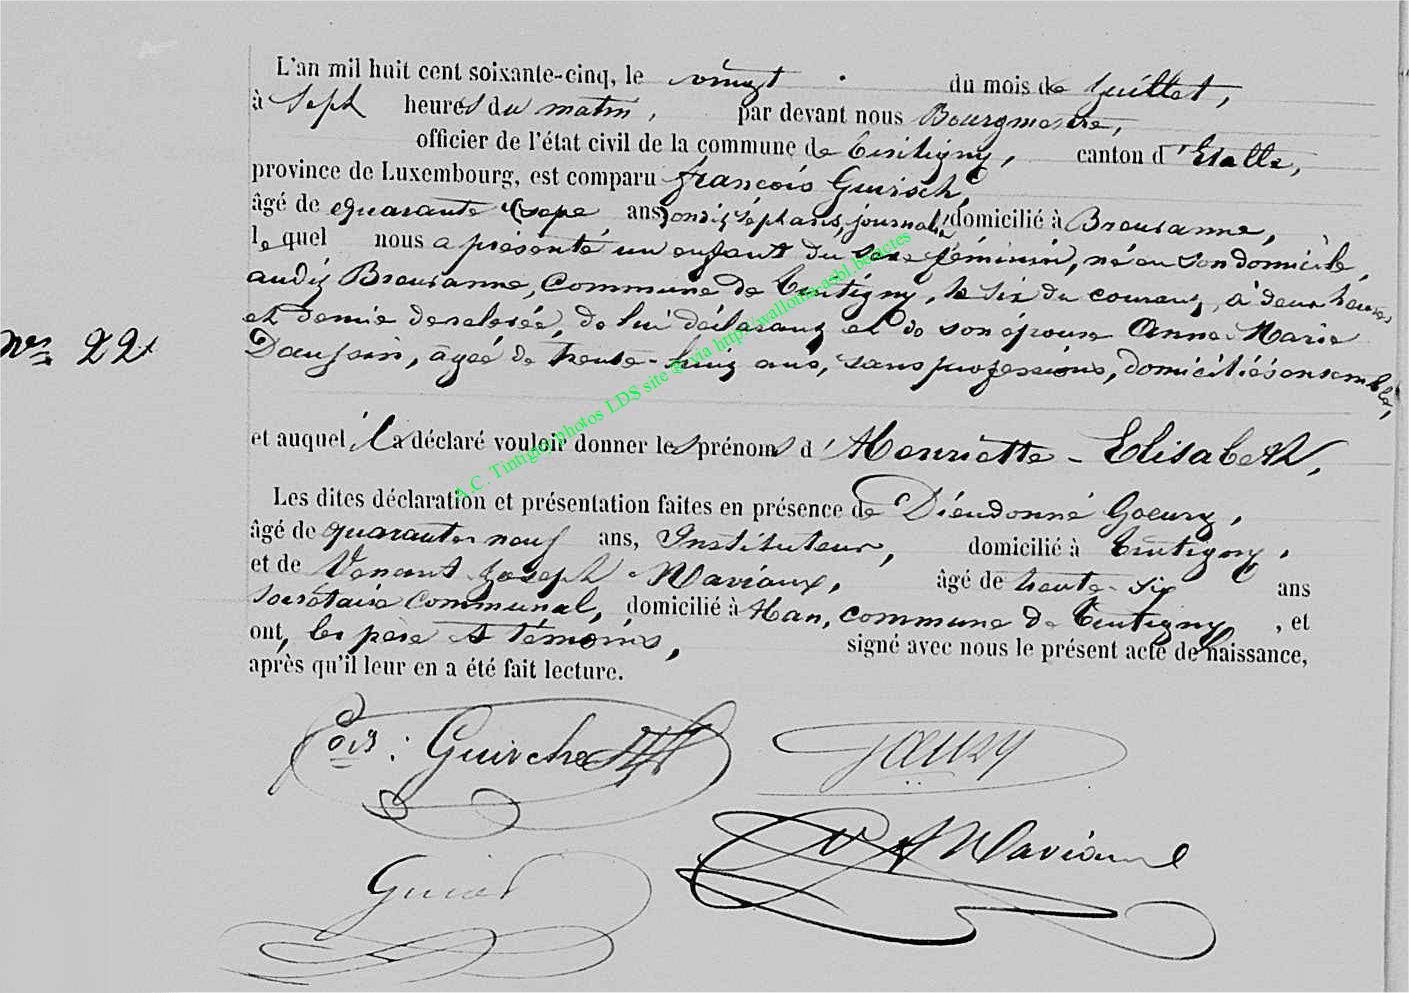 L'an mil huit cent soixante-cinq, le vingt du mois de Juillet,
à Sept heures du matin, par devant nous Bourgmestre,
officier de l'état civil de la commune de Tintigny, canton d'Etalle,
province de Luxembourg, est comparu françois Guirsch,
âgé de quarante sept ans, journalier domicilié à Breuvanne,
lequel nous a présenté un enfant du sexe féminin, né en son domicile,
audit Breuvanne, Commune de Tintigny, le six du courant, à deux heures
et demie de relevée, de lui déclarant et de son épouse Anne Marie
agée de trente-huit ans, sans professions, domiciliés ensemble,
Nro 22
et auquel il a déclaré vouloir donner les prénoms d'Henriette - Elisabeth,
Les dites déclaration et présentation faites en présence de Dieudonné Goeury,
âgé de quarante neuf ans, Instituteur, domicilié à Tintigny,
et de Venant Joseph Maviaux, âgé de trente-six ans
Secrétaire Communal, domicilié à Han, commune de Tintigny, et
ont, les père et témoins, signé avec nous le présent acte de naissance,
après qu'il leur en a été fait lecture.
fois : Guirche Goeury
V J Maviaux
A.C. Tintigny photos LDS site & via http://wallonia-asbl.be/actes